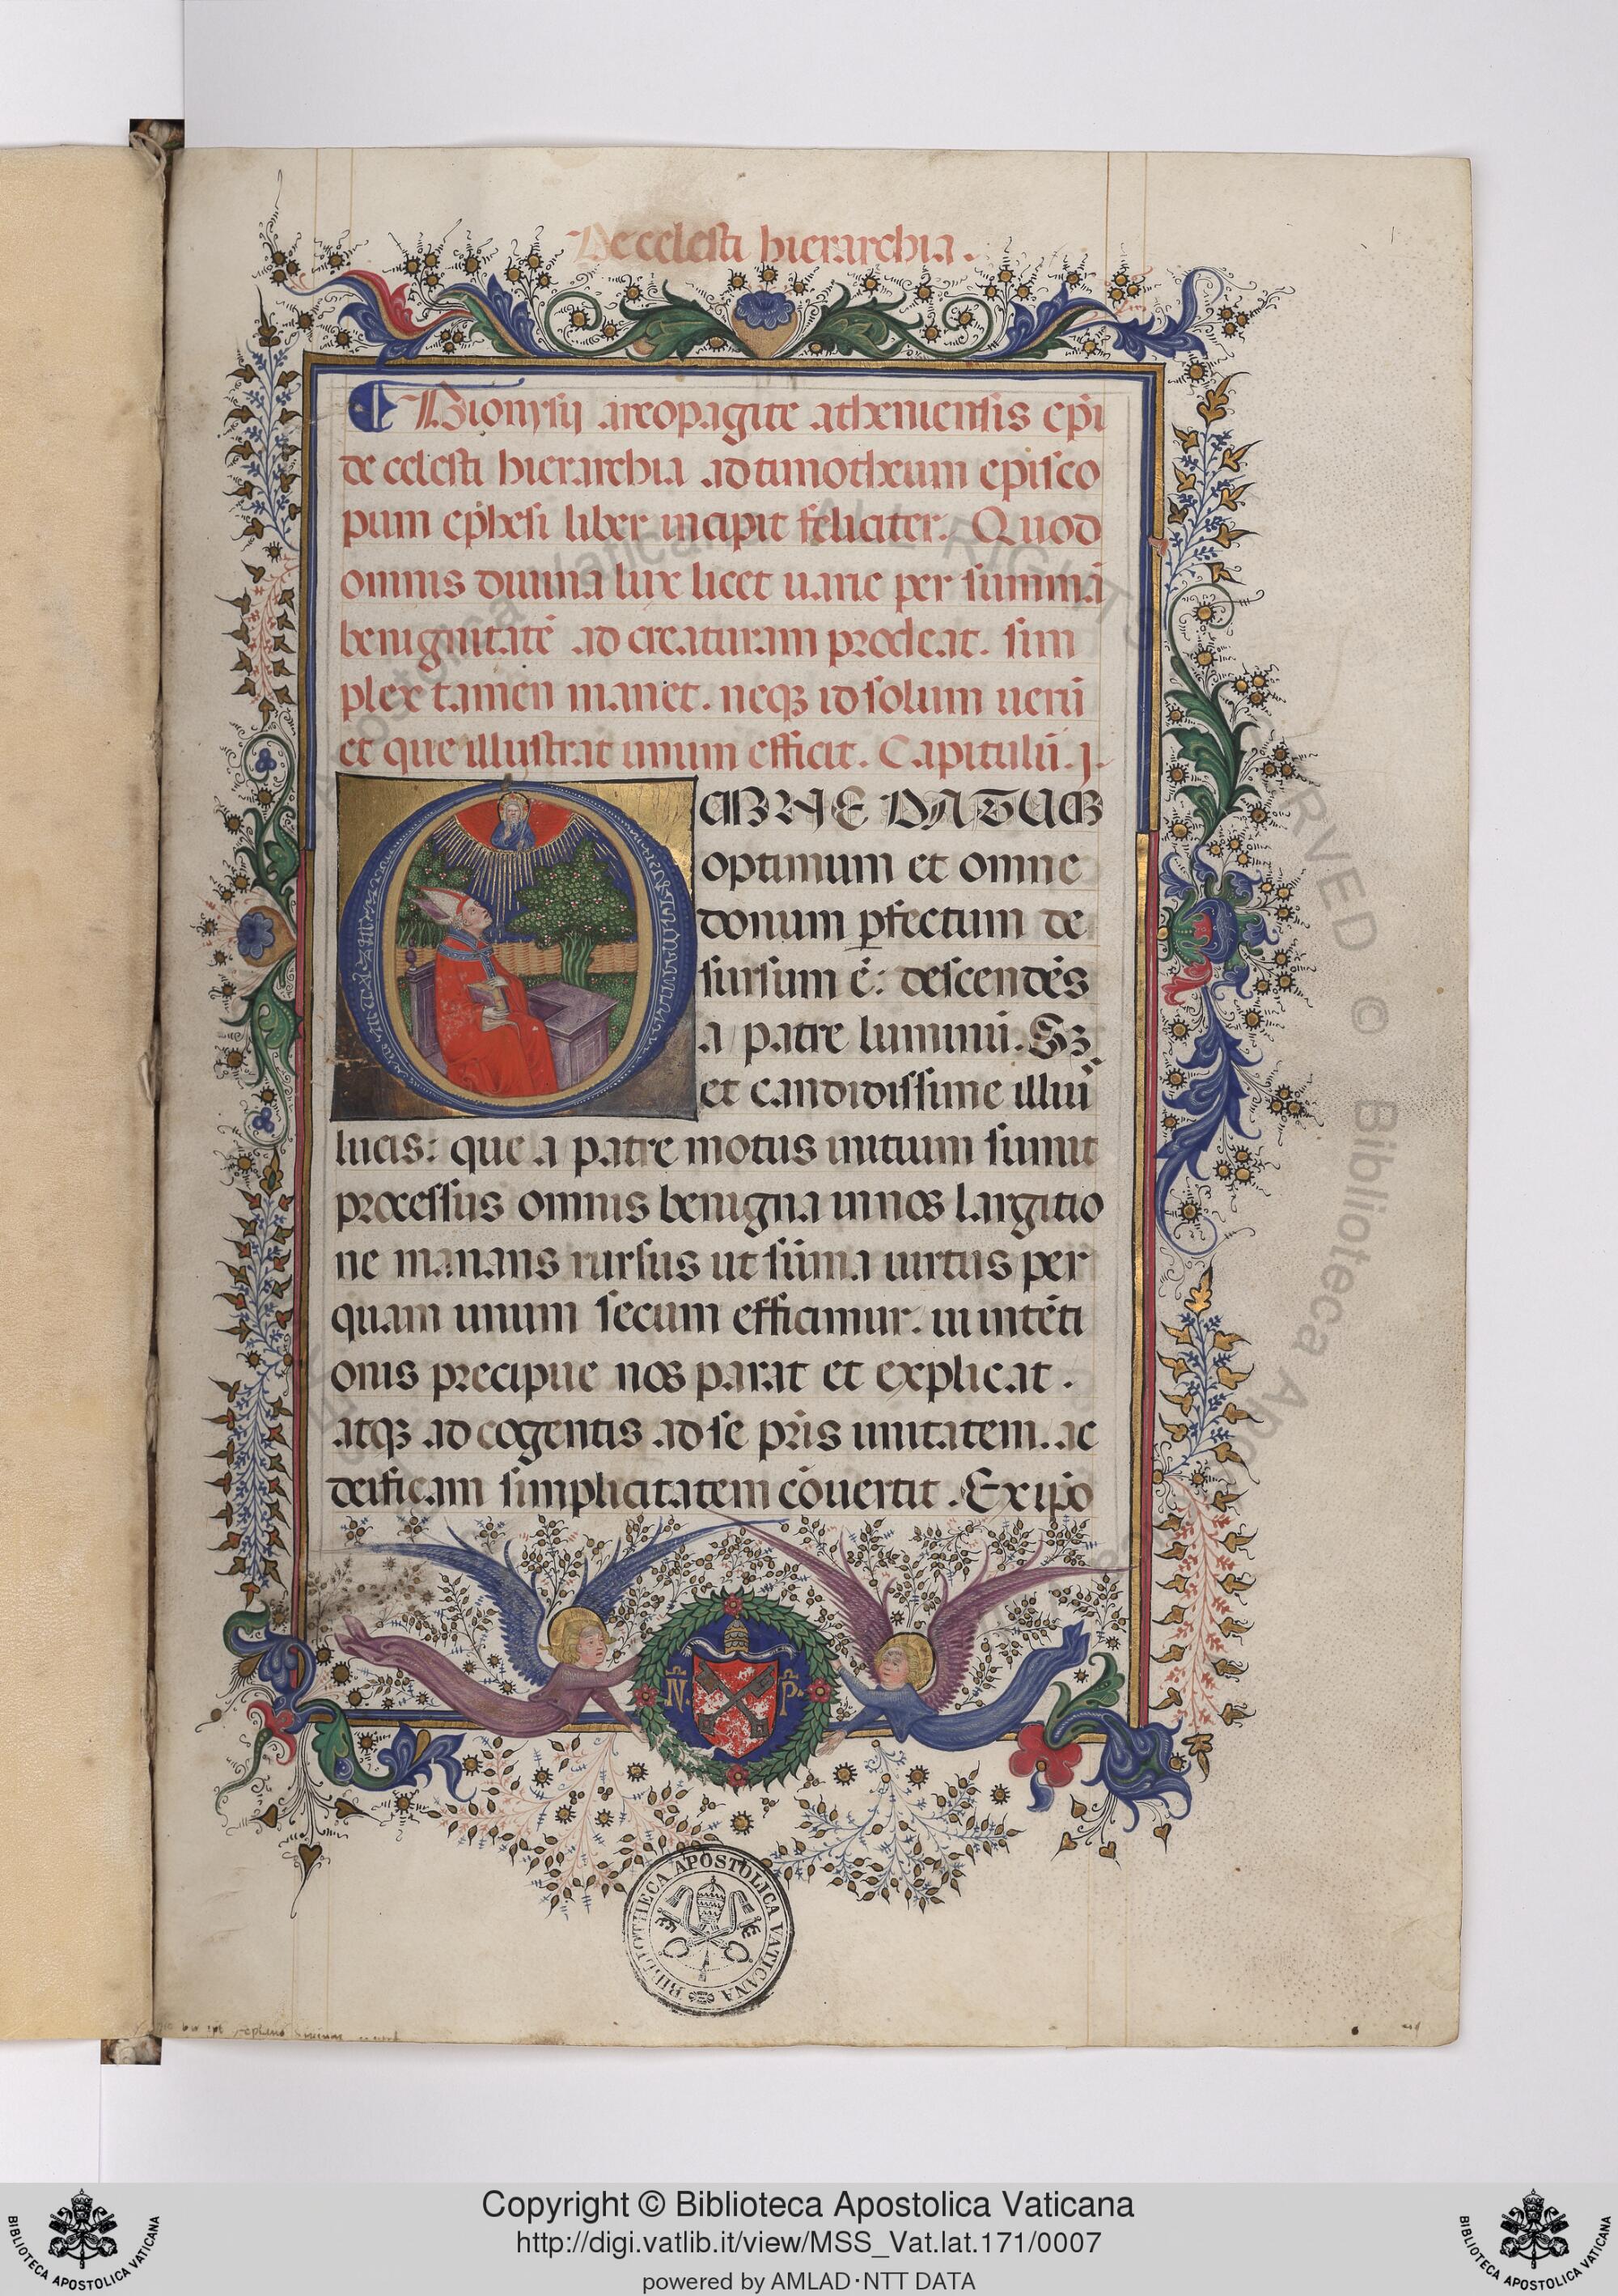 De celesti hierarchia.
Dionysij areopagite atheniensis ep̄i
de celesti hierarchia ad timotheum episco
pum ep̄hesi liber incipit feliciter. Quod
omnis diuina lux licet uarie per summā
benignitatē ad creaturam prodeat. sim
plex tamen manet. neqꝫ id solum uerū
et que illustrat unum efficit. Capitulū .j.
OMNE DATUM
optimum et omne
donum ꝑfectum de
sursum ē: descendēs
a patre luminū. Sꝫ
et candidissime illiū
lucis: que a patre motus initium sumit
processus omnis benigna in nos largitio
ne manans rursus ut sūma uirtus per
quam unum secum efficimur. in intēti
onis precipue nos parat et explicat.
atqꝫ ad cogentis ad se pr̄is unitatem. ac
deificam simplicitatem cōuertit. Ex ip̄o
N̄. P̄.
BIBLIOTHECA APOSTOLICA VATICANA
Copyright © Biblioteca Apostolica Vaticana
http://digi.vatlib.it/view/MSS_Vat.lat.171/0007
powered by AMLAD·NTT DATA
BIBLIOTECA APOSTOLICA VATICANA
BIBLIOTECA APOSTOLICA VATICANA